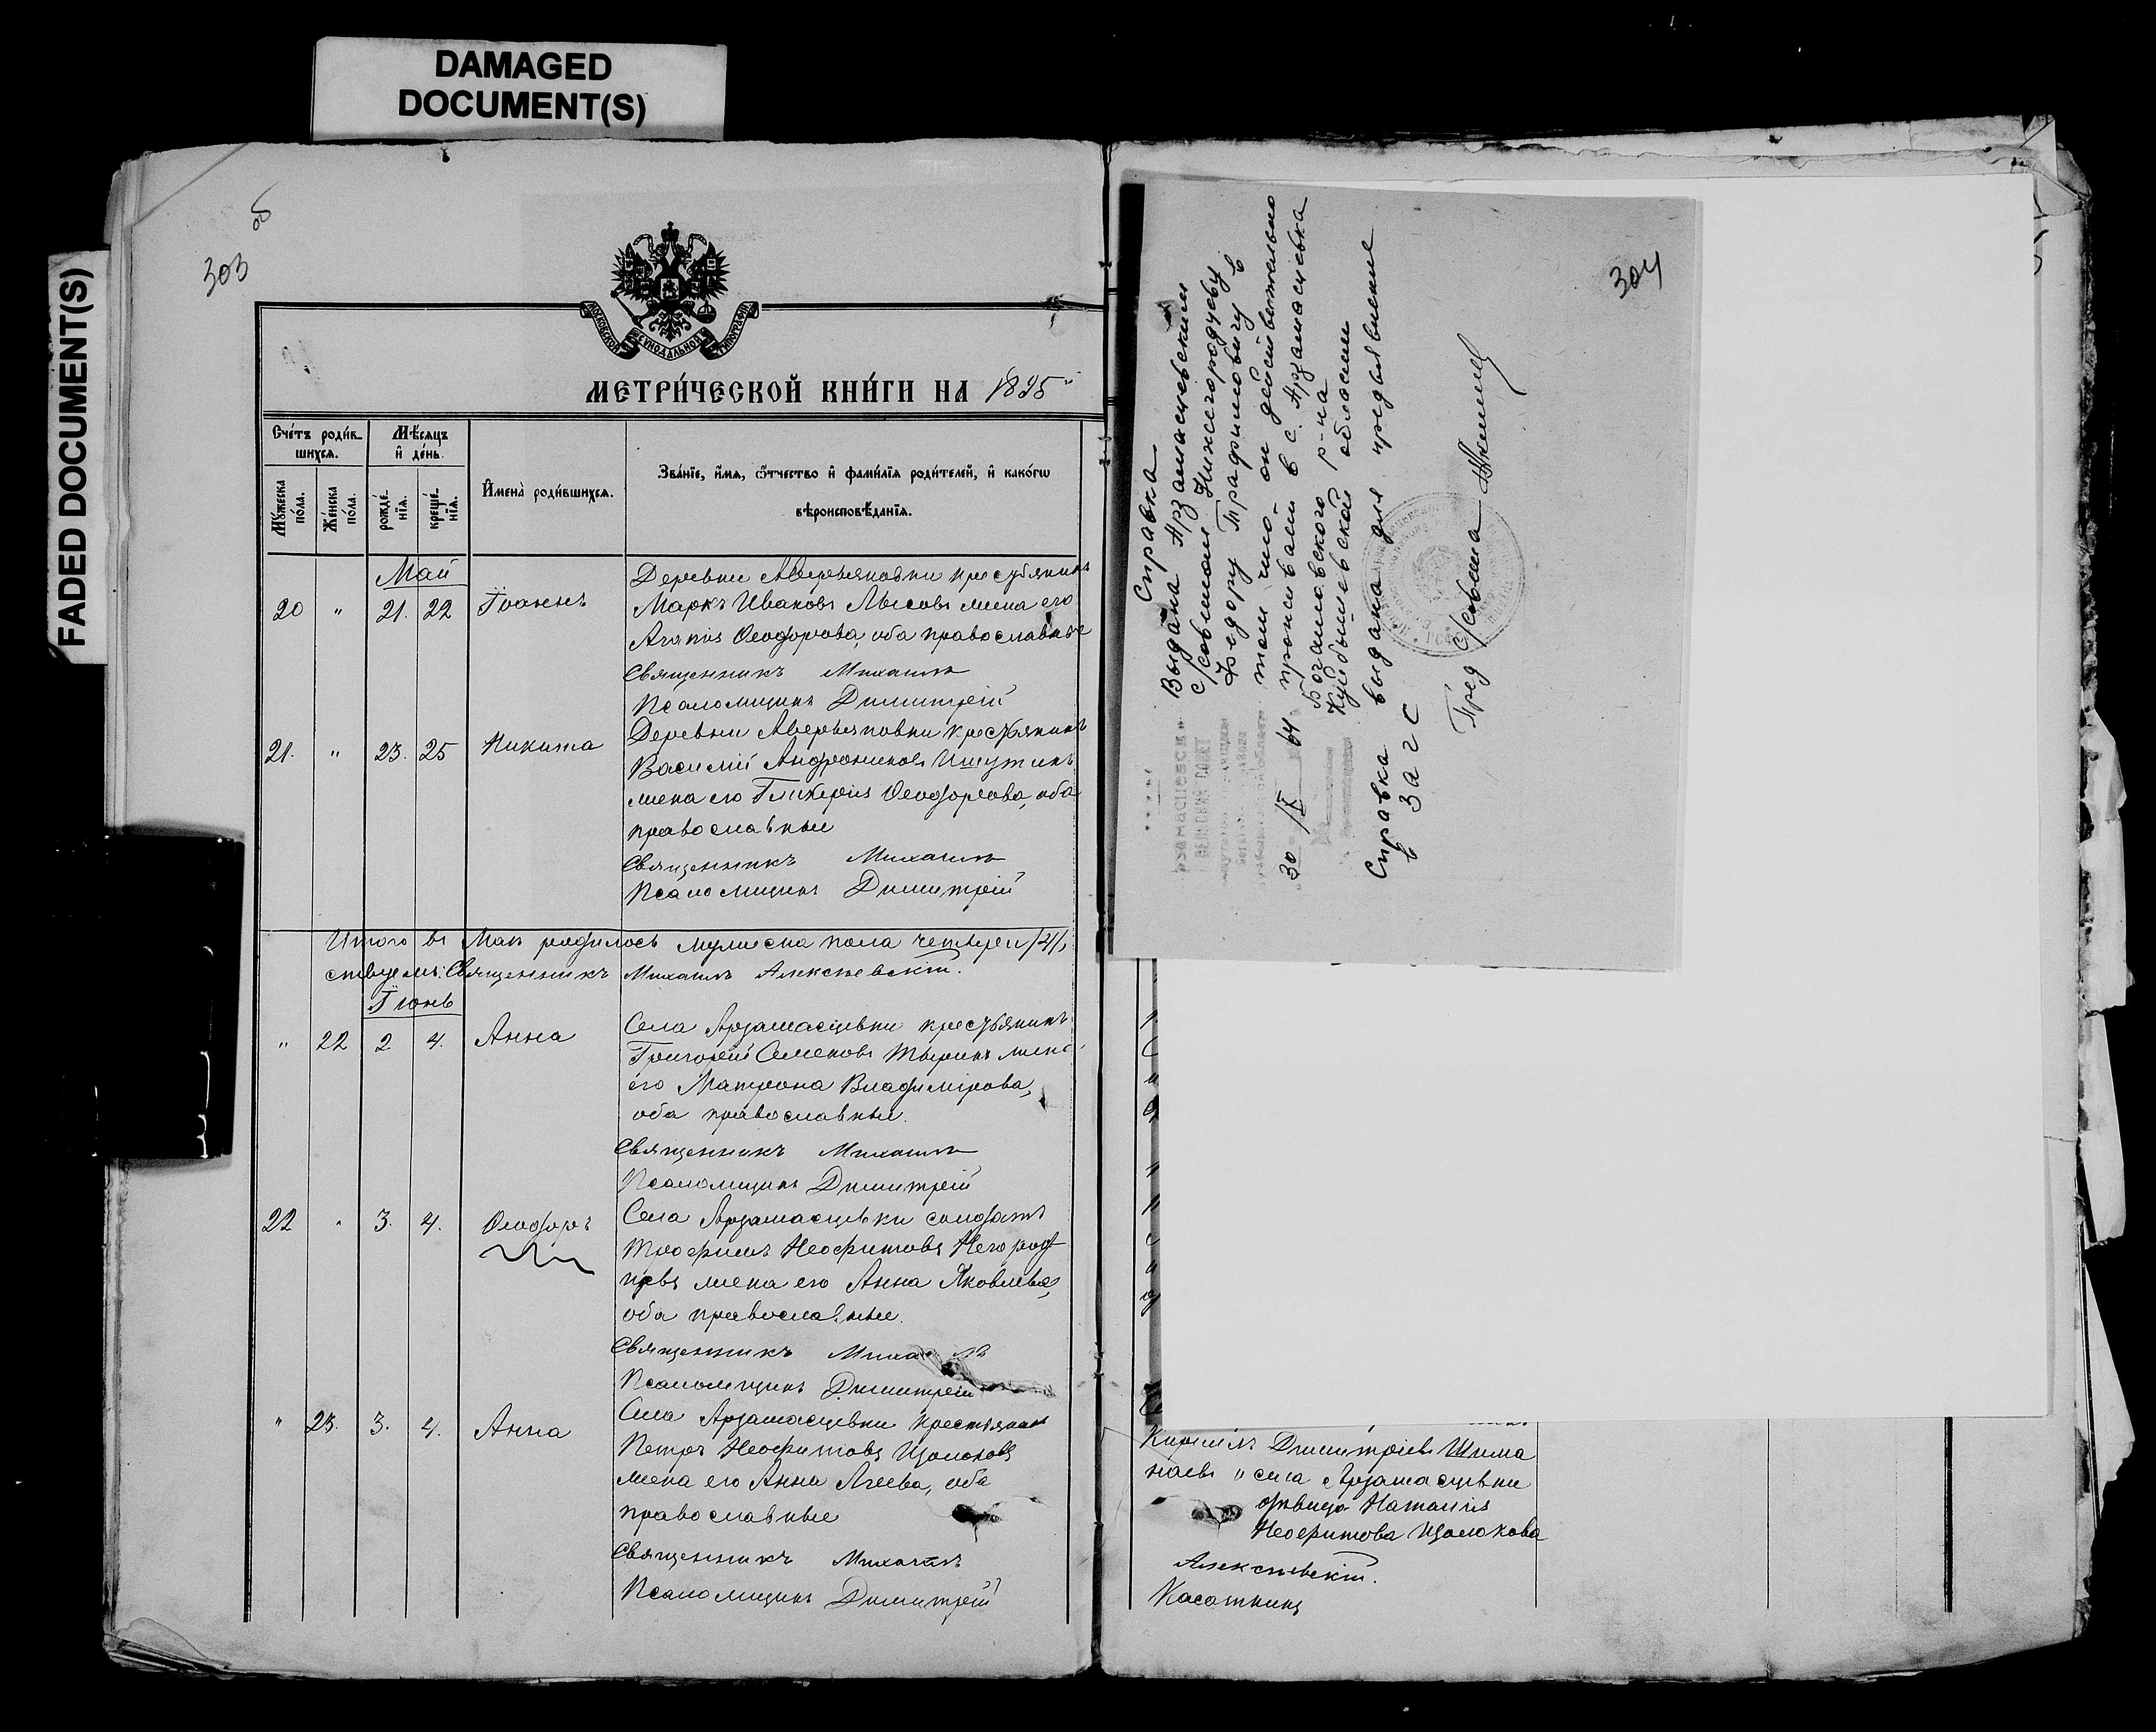 DAMAGED
DOCUMENT(S)
FADED DOCUMENT(S)
303
об
МОСКОВСКОЙ СѴНОДАЛЬНОЙ ТИПОГРАФІИ
МЕТРИ́ЧЕСКОЙ КНИ́ГИ НА 1895
Сче́тъ роди́в-
шихся.
Мѣ́сяцъ
и҆ де́нь.
Мꙋ́жеска
по́ла.
Же́нска
по́ла.
рожде́-
нїѧ.
креще́-
нїѧ.
И҆мена̀ роди́вшихся.
Зва́нїе, и҆́мя, ѻ҆́тчество и҆ фами́лїя роди́телей, и҆ како́гѡ
вѣроисповѣ́данїя.
Май
20 " 21. 22 Іоаннъ
Деревни Аверьяновки крестьянинъ
Маркъ Ивановъ Лысовъ жена его
Ѳеодорова, оба православные
Священникъ Михаилъ
Псаломщикъ Димитрій
21. " 23. 25 Никита
Деревни Аверьяновки крестьянинъ
Василій Андрониковъ Ишутинъ
жена его Гликерія Ѳеодорова, оба
православные
Священникъ Михаилъ
Псаломщикъ Димитрій
Итого въ Маѣ родилось мужеска пола четверо /4/,
Священникъ Михаилъ Алексѣевскій.
Іюнь
" 22 2 4. Анна
Села Арзамасцевки крестьянинъ
Григорій Семеновъ жена
его Матрона Владимірова,
оба православные.
Священникъ Михаилъ
Псаломщикъ Димитрій
22 " 3. 4. Ѳеодоръ
Села Арзамасцевки солдатъ
Трофимъ Неофитовъ Негород
цевъ жена его Анна Яковлева,
оба православные.
Священникъ Михаилъ
Псаломщикъ Димитрій
" 23. 3. 4. Анна
Села Арзамасцевки крестьянинъ
Петръ Неофитовъ Щолоковъ
жена его Анна Агеева, оба
православные
Священникъ Михаилъ
Псаломщикъ Димитрій
304
Справка
Выдана Арзамасцевским
с/советом Нижегородцеву
Федору Трафимовичу в
том что он действительно
проживает в с. Арзамасцевка
Богатовского р-на
Куйбышевской области
Справка выдана для предъявление
в ЗАГС
Пред с/совета
30 /IX 64
СЕЛЬСКИЙ СОВЕТ
Кириллъ Димитріевъ Шима
наевъ и села Арзамасцевки
дѣвица Наталія
Неофитова Щолокова
Алексѣевскій.
Касаткинъ